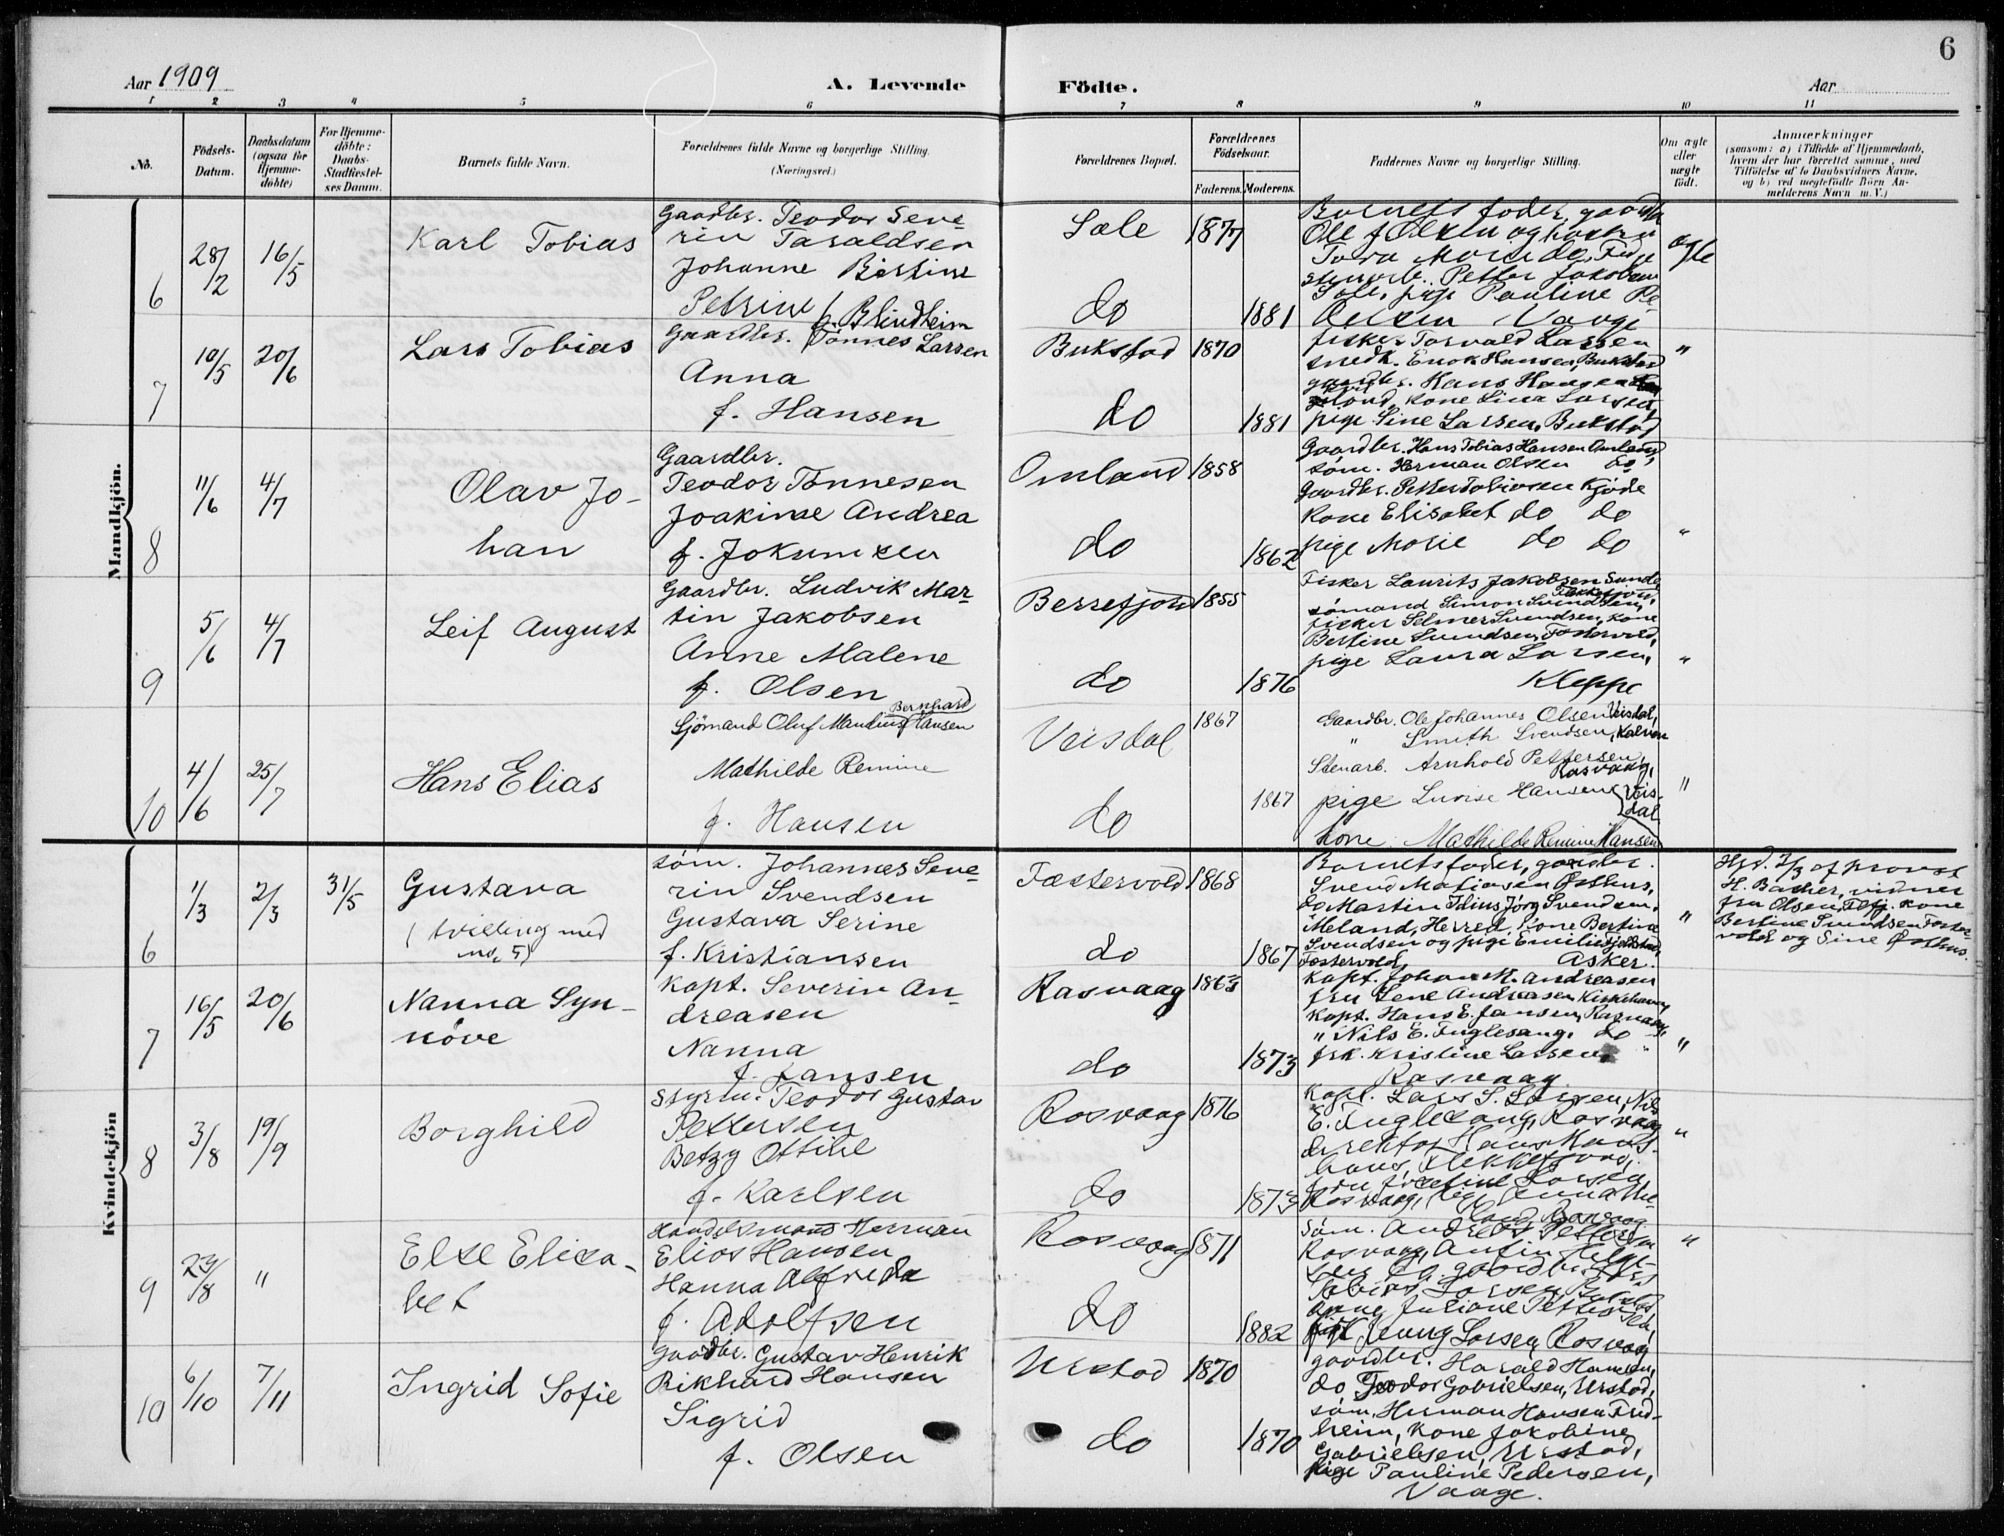 6
Aar 1909
A. Levende Födte.
Aar
1 2 3 4 5 6 7 8 9 10 11
No.
Födsels-Datum.
Daabsdatum (ogsaa for Hjemme-döbte)
For Hjemme-döbte: Daabs-Stadfæstel-ses Datum.
Barnets fulde Navn.
Forældrenes fulde Navne og borgerlige Stilling.
(Næringsvei.)
Forældrenes Bopæl.
Forældrenes Födselsaar.
Faderens. Moderens.
Faddernes Navne og borgerlige Stilling.
Om ægte eller uægte födt.
Anmærkninger
(saasom: a) i Tilfælde af Hjemmedaab,
hvem der har forrettet samme, med
Tilföielse af to Daabsvidners Navne,
og b) ved uægtefödte Börn An-
melderens Navn m. V.)
Mandkjön.
6
28/2
16/5
Karl Tobias
Gaardbr. Teodor Seve-
rin Taraldsen
Johanne Bertine
Petrine f. Blindheim
Sæle
do
1877
1881
Barnets fader, gaardbr.
Ole J. Olsen og kone
Petter Jakobsen
pige Pauline
ægte
7
10/5
20/6
Lars Tobias
Gaardbr. Tönnes Larsen
Anna
f. Hansen
Bukstad
do
1870
1881
fisker Torvald Larsen
snedk. Enok Hansen, Bukstad
gaardbr. Hans Haagensen
kone Lina Larsen,
pige Sine Larsen, Bukstad
"
8
11/6
4/7
Olav Jo-
han
Gaardbr.
Teodor Tönnesen
Joakime Andrea
f. Jokumsen
Omland
do
1858
1862
Gaardbr. Hans Tobias Hansen Omland,
söm. Herman Olsen do,
Gaardbr. Petter Tobiasen Fjöde
kone Elisabet do do
pige Marie do do
"
9
5/6
4/7
Leif August
Gaardbr. Ludvik Mar-
tin Jakobsen
Anne Malene
f. Olsen
Berrefjord
do
1855
1876
Fisker Laurits Jakobsen Sunde
sömand Simon Svendsen,
fisker Selmer Svendsen, kone
Bertine Svendsen, Fæstervold,
pige Laura Larsen,
Kleppe
"
10
4/6
25/7
Hans Elias
Sjömand Oluf Mandius Bernhard Hansen
Mathilde Remine
f. Hansen
Veisdal
do
1867
1867
Gaardbr. Ole Johannes Olsen Veisdal,
" Smith Svendsen,
Stenarb. Arnhold Pettersen,
Rasvaag,
pige Luvise Hansen, Veis-
dal
kone Mathilde Remine Hansen
"
Kvindekjön
6
1/3
2/3
31/5
Gustava
(tvilling med
no. 5)
söm. Johannes Seve-
rin Svendsen
Gustava Serine
f. Kristiansen
Fæstervold
do
1868
1867
Barnets fader, gaardbr.
Svend Matiasen Östhus,
do Martin Idius Jörg Svendsen,
Meland, Herred, kone Bertine
Svendsen og pige Emilie
Fæstervold, Asker.
"
Hjd. 2/3 af provst
H. Bacher, vidner
fru Olsen, kone
Bertine Svendsen Fæster-
vold og Sine Östhus.
7
16/5
20/6
Nanna Syn-
növe
Kapt. Severin An-
dreasen
Nanna
f. Jansen
Rasvaag
do
1863
1873
Kapt. Johan M. Andreasen
fru Lene Andreasen, Kirkehavn,
kapt. Hans E. Jansen, Rasvaag,
" Nils E. Fuglesang, do
frk. Kristine Larsen,
Rasvaag
"
8
3/8
19/9
Borghild
Styrm. Teodor Gustav
Pettersen
Betzy Ottilie
f. Karlsen
Rasvaag
do
1876
1873
Kapt. Lars S. Larsen, Nils
E. Fuglesang, Rasvaag
direktör Hans
Flekkefjord,
fru Josefine Larsen,
Rasvaag,
"
9
29/8
"
Else Elisa-
bet
Handelsmand Herman
Elias Hansen
Hanna Alfreda
f. Adolfsen
Rasvaag
do
1871
1882
Söm. Andreas Pettersen
Rasvaag,
Tobias Larsen
Anne Juliane Pettersen,
Jenny Larsen, Rasvaag
"
10
6/10
7/11
Ingrid Sofie
Gaardbr. Gustav Henrik
Rikhard Hansen
Sigrid
f. Olsen
Urstad
do
1870
1870
gaardbr. Harald Hansen,
do Teodor Gabrielsen, Urstad,
söm. Herman Hansen Fred-
heim, kone Jakobine
Gabrielsen, Urstad,
pige Pauline Pedersen,
Vaage.